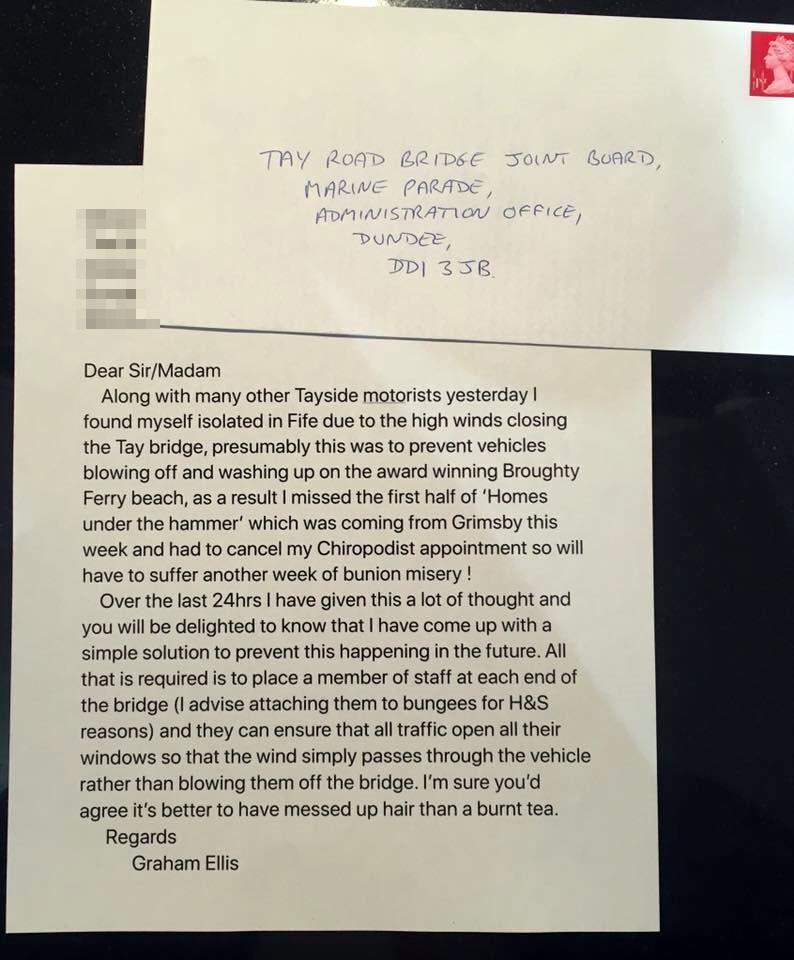 TAY ROAD BRIDGE JOINT BOARD,
MARINE PARADE,
ADMINISTRATION OFFICE,
DUNDEE,
DD1 3JB.
Dear Sir/Madam
Along with many other Tayside motorists yesterday I
found myself isolated in Fife due to the high winds closing
the Tay bridge, presumably this was to prevent vehicles
blowing off and washing up on the award winning Broughty
Ferry beach, as a result I missed the first half of ‘Homes
under the hammer’ which was coming from Grimsby this
week and had to cancel my Chiropodist appointment so will
have to suffer another week of bunion misery !
Over the last 24hrs I have given this a lot of thought and
you will be delighted to know that I have come up with a
simple solution to prevent this happening in the future. All
that is required is to place a member of staff at each end of
the bridge (I advise attaching them to bungees for H&S
reasons) and they can ensure that all traffic open all their
windows so that the wind simply passes through the vehicle
rather than blowing them off the bridge. I’m sure you’d
agree it’s better to have messed up hair than a burnt tea.
Regards
Graham Ellis